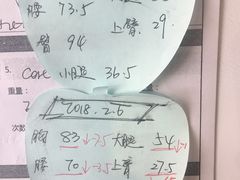 腰 73.5 上臂. 29.
臀 94
5. Core 小腿 36.5
重量:
2018.2.6
次数
胸 83 ↓-7.5 大腿 54 ↓-1
腰 70 ↓-3.5 上臂 27.5